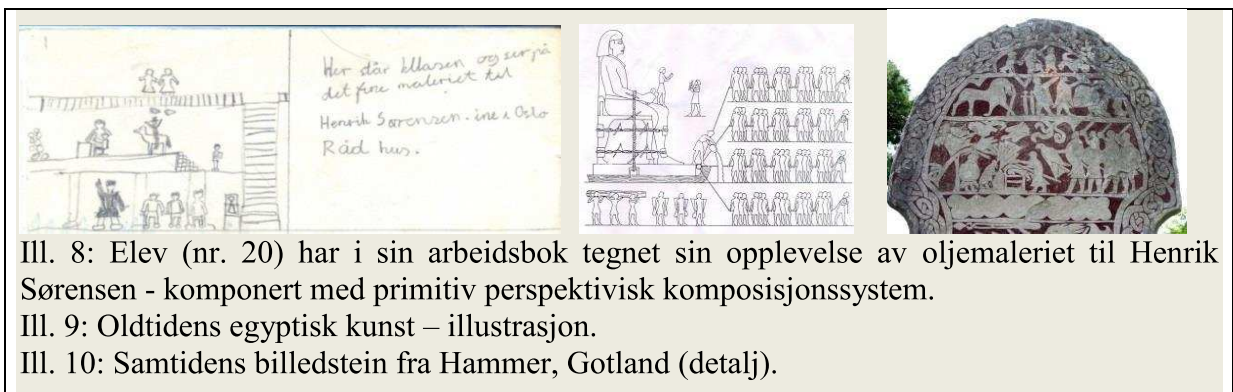 Her står klassen og ser på
det fine maleriet til
Henrik Sørensen. ine i Oslo
Råd hus.
Ill. 8: Elev (nr. 20) har i sin arbeidsbok tegnet sin opplevelse av oljemaleriet til Henrik
Sørensen - komponert med primitiv perspektivisk komposisjonssystem.
Ill. 9: Oldtidens egyptisk kunst – illustrasjon.
Ill. 10: Samtidens billedstein fra Hammer, Gotland (detalj).